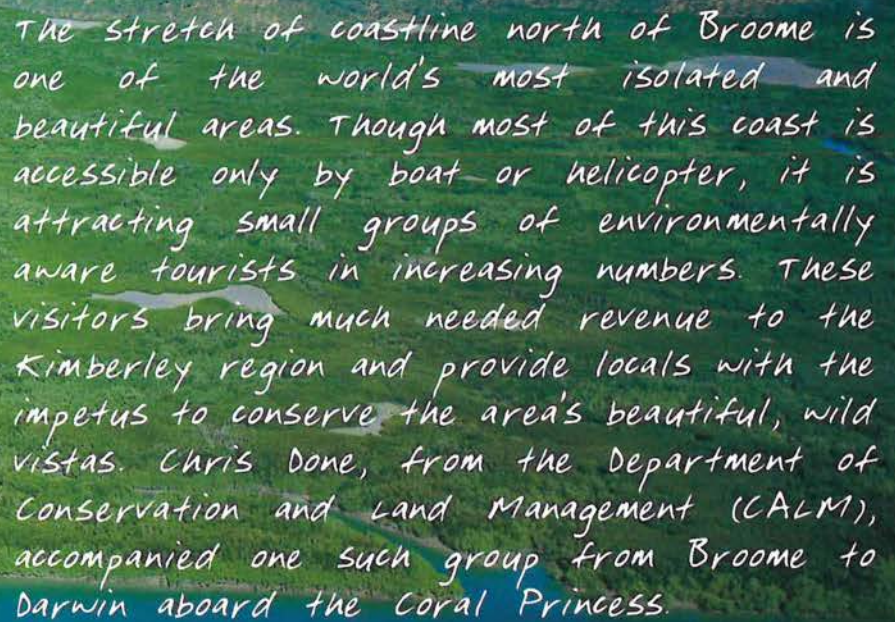 The stretch of coastline north of Broome is
one of the world's most isolated and
beautiful areas. Though most of this coast is
accessible only by boat or helicopter, it is
attracting small groups of environmentally
aware tourists in increasing numbers. These
visitors bring much needed revenue to the
Kimberley region and provide locals with the
impetus to conserve the area's beautiful, wild
vistas. Chris Done, from the Department of
Conservation and Land Management (CALM),
accompanied one such group from Broome to
Darwin aboard the Coral Princess.